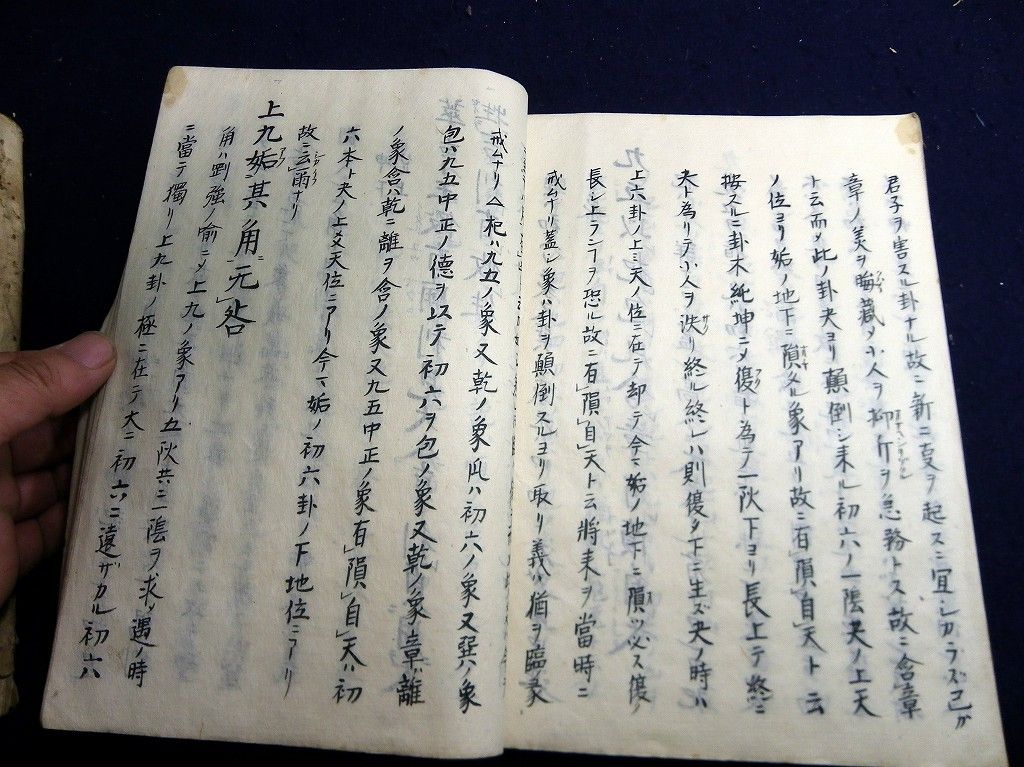 君子ヲ害スル卦ナル故ニ新ニ事ヲ起スニ宜シカラズ己ガ
章ノ美ヲ晦藏メ小人ヲ抑斤ヲ急務トス故ニ含章
ト云而メ此ノ卦夬ヨリ顛倒シ来ル初六ノ一陰夬ノ上天
ノ位ヨリ姤ノ地下ニ隕スル象アリ故ニ有隕自天ト云
按スルニ卦木純坤ニメ復ト為テ一阦下ヨリ長上テ終ニ
夬ト為リテ小人ヲ決リ終ル終ハ則復タ下ニ生ズ夬ノ時ハ
上六卦ノ上ミ天ノ位ニ在テ却テ今マ姤ノ地下ニ隕ツ必ス復ノ
長シ上ランヿヲ恐ル故ニ有隕自天ト云將来ヲ當時ニ
戒ムナリ蓋シ象ハ卦ヲ顛倒スルヨリ取リ義ハ猶ヲ臨彖
戒ムナリ△杞ハ九五ノ象又乾ノ象爪ハ初六ノ象又巽ノ象
包ハ九五中正ノ德ヲ以テ初六ヲ包ノ象又乾ノ象章ハ離
ノ象含ハ乾ニ離ヲ含ノ象又九五中正ノ象有隕自天ハ初
六本ト夬ノ上爻天位ニアリ今マ姤ノ初六卦ノ下地位ニアリ
故ニ云爾ナリ
上九姤其角元咎
角ハ剛強ノ喻ニメ上九ノ象アリ五阦共ニ一陰ヲ求ノ遇ノ時
ニ當テ獨リ上九卦ノ極ニ在テ大ニ初六ニ遠ザカル初六